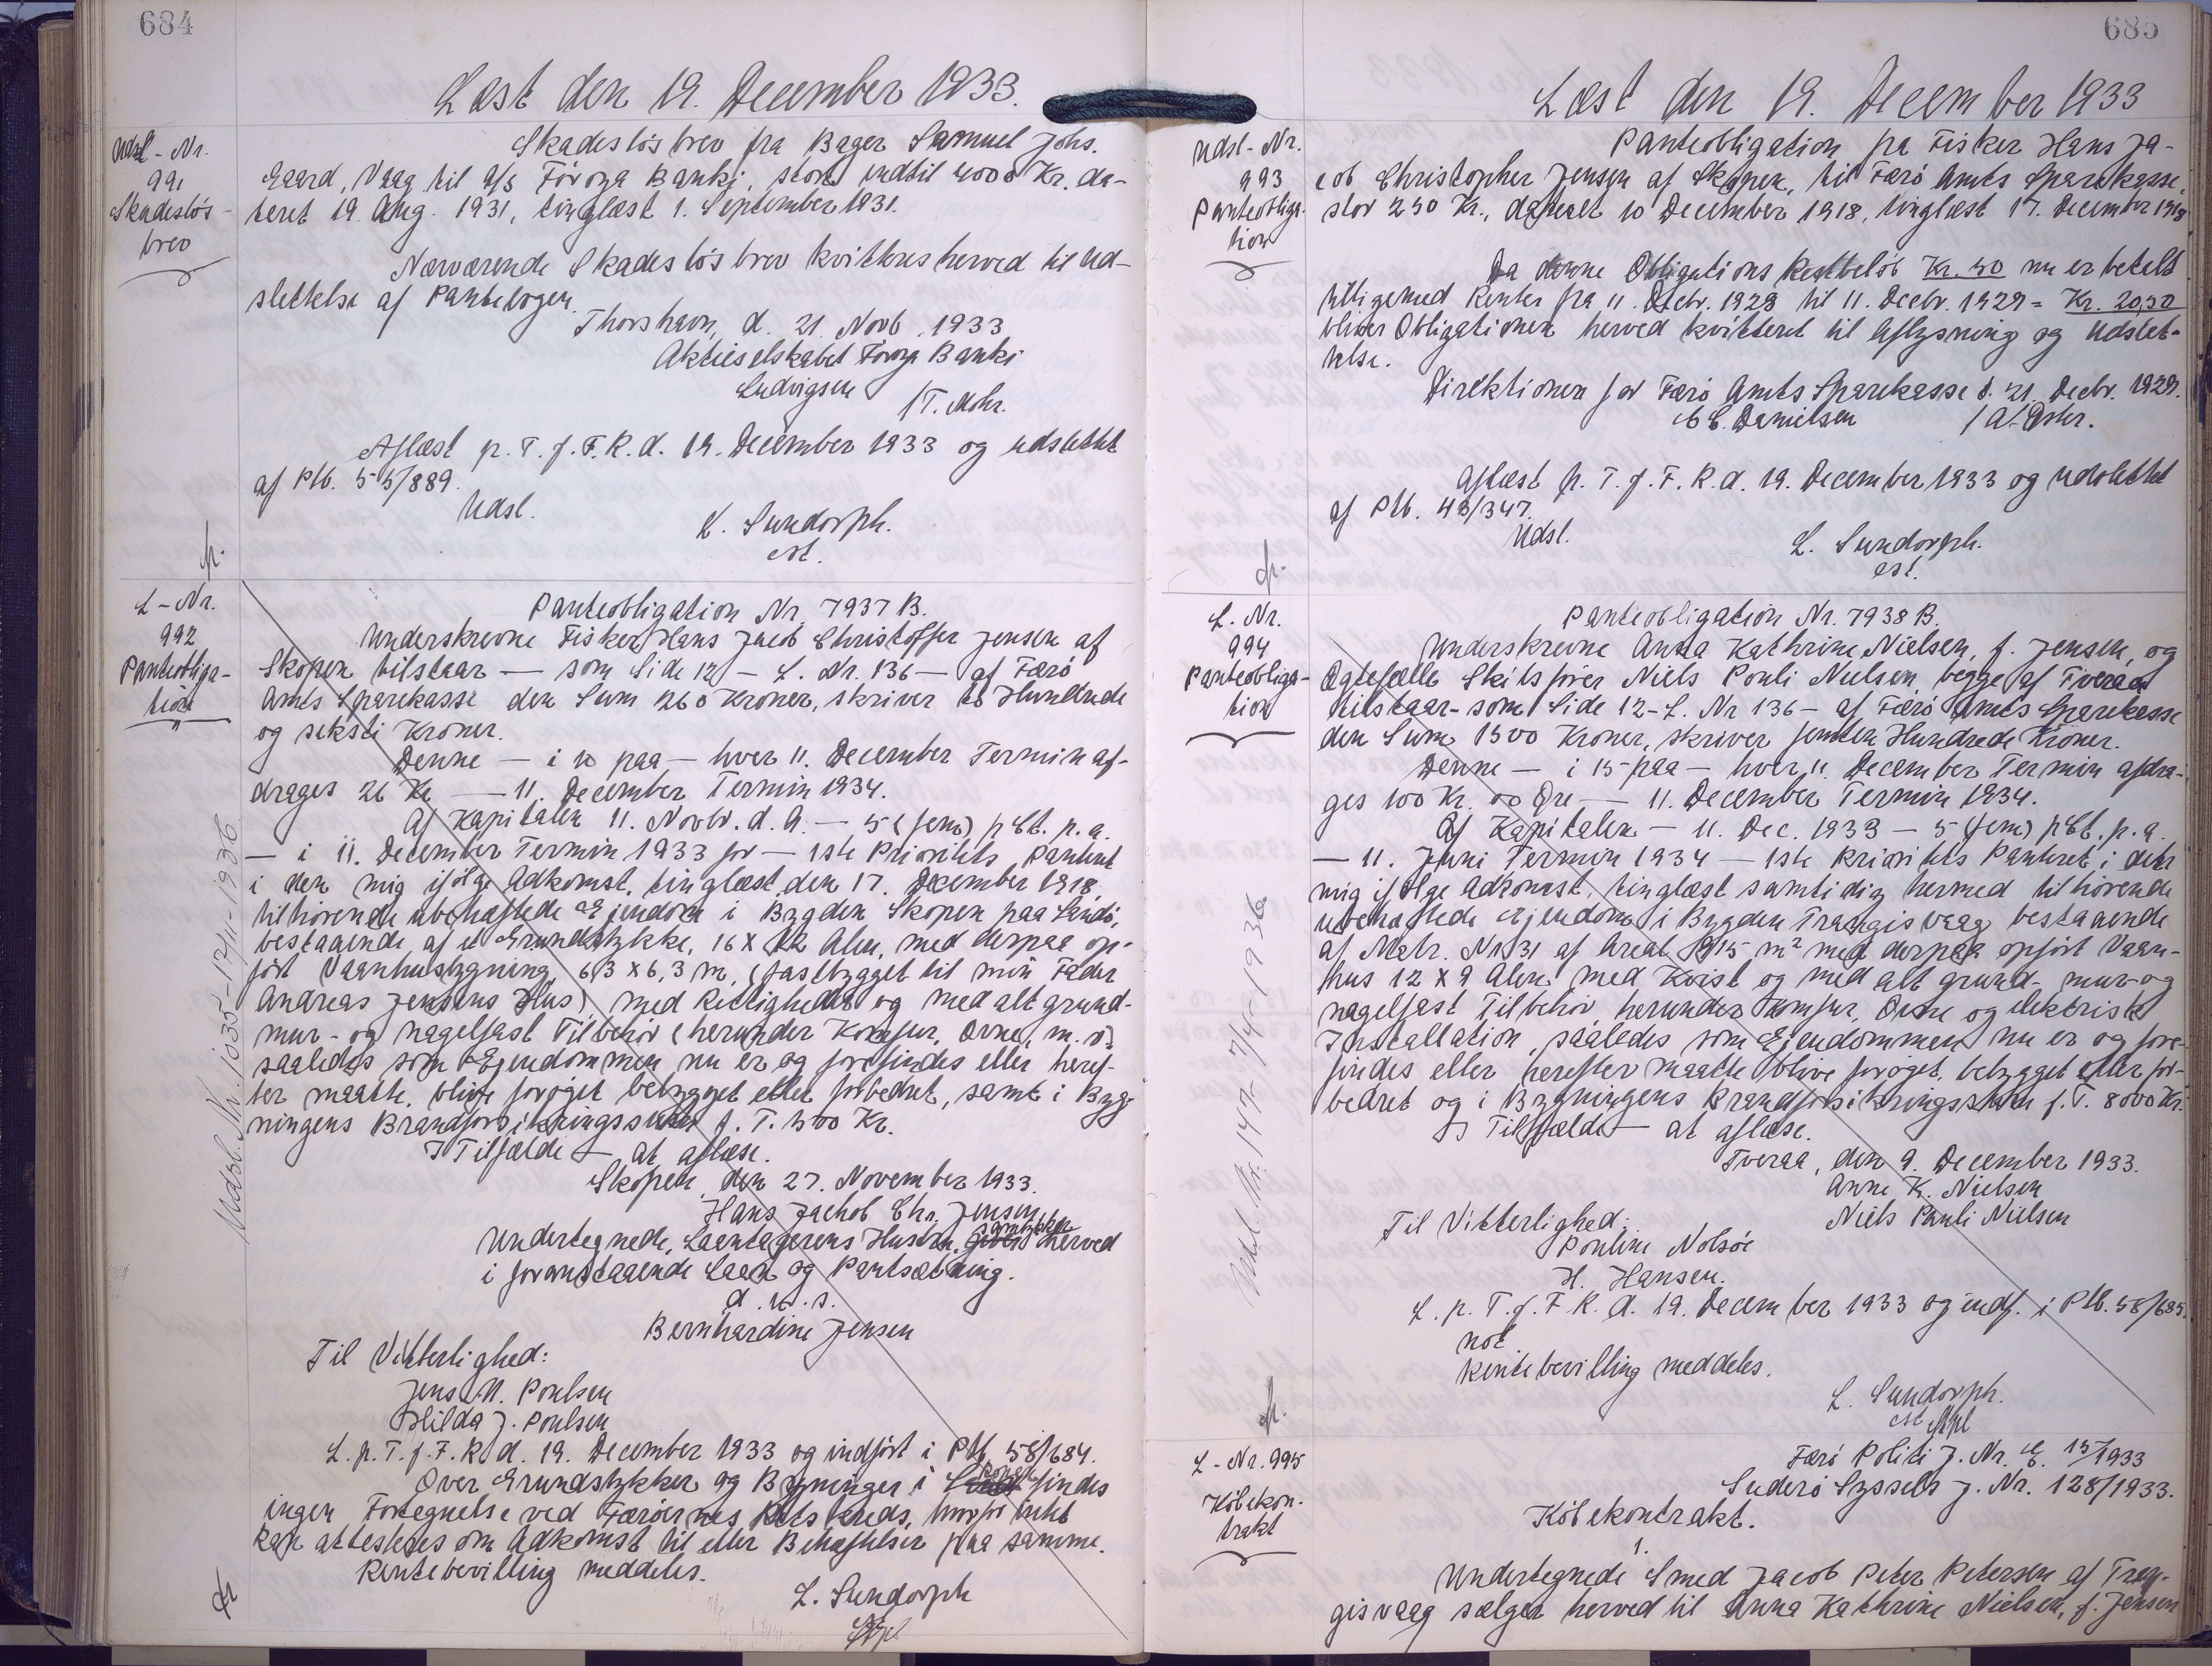 684
Læst den 19. December 1933.
Udsl-Nr.
991
Skadesløs-
brev
Skadesløsbrev fra Bager Samuel Johs.
Gaard, Vaag til A/S Föroya Banki, stort indtil 4000 Kr. da-
teret 19. Aug. 1931, tinglæst 1. September 1931.
Nærværende Skadesløsbrev kvitteres herved til Ud-
slettelse af Pantebogen.
Thorshavn, d. 21. Novb. 1933
Aktieselskabet Föroya Banki
Ludvigsen
/T. Mohr.
Aflæst p. T. f. F. R. d. 19. December 1933 og udslettet
af Ptb. 55/889.
Udsl.
L. Sundorph.
cst.
L-Nr.
992
Panteobliga-
tion
Panteobligation Nr. 7937 B.
Underskrevne Fisker Hans Jacob Christoffer Jensen af
Skopen tilstaar — som Side 12 — L. Nr. 136 — af Færø
Amts Sparekasse den Sum 260 Kroner, skriver to Hundrede
og seksti Kroner.
Denne — i 10 paa — hver 11. December Termin af-
drages 26 Kr — 11. December Termin 1934.
Af Kapitalen 11. Novbr. d. A. — 5 (fem) pCt. p. a.
— i 11. December Termin 1933 for — 1ste Prioritets Panteret
i den mig ifølge Adkomst, tinglæst den 17. December 1918,
tilhørende ubehæftede Ejendom i Bygden Skopen paa Sandø,
bestaaende af et Grundstykke, 16 X 12 Alen, med derpaa op-
ført Vaanhusbygning 6,3 X 6,3 m, (fastbygget til min Fader
Andreas Jensens Hus) med Rettigheder og med alt grund-
mur- og nagelfast Tilbehør (herunder Komfur, Ovne, m. v.)
saaledes som Ejendommen nu er og forefindes eller heref-
ter maatte blive forøget bebygget eller forbedret, samt i Byg-
ningens Brandforsikringssum p. T. 500 Kr.
I Tilfælde — at aflæse.
Skopen, den 27. November 1933.
Hans Jachob Chr. Jensen
Undertegnede, Laantagerens Hustru, samtykker herved
i foranstaaende Laan og Pantsætning.
d. u. s.
Bernhardine Jensen
Til Vitterlighed:
Jens M. Poulsen
Hilda J. Poulsen
L. p. T. f. F. R. d. 19. December 1933 og indført i Ptb. 58/684.
Over Grundstykker og Bygninger i findes
ingen Fortegnelse ved Færøernes Retskreds, hvorfor intet
kan attesteres om Adkomst til eller Behæftelser paa samme.
Rentebevilling meddeles.
L. Sundorph
Udsl. Nr. 1035 - 12/11-1936
685
Læst den 19. December 1933
Udsl-Nr.
993
Panteobliga-
tion
Panteobligation fra Fisker Hans Ja-
cob Christopher Jensen af Skopen, til Færø Amts Sparekasse,
stor 250 Kr., dateret 10 December 1918, tinglæst 17. December 1918
Da denne Obligations Restbeløb Kr. 50 nu er betalt
tilligemed Renter fra 11. Decbr. 1928 til 11. Decbr. 1929 = Kr. 20,50
bliver Obligationen herved kvitteret til Aflysning og Udslet-
telse.
Direktionen for Færø Amts Sparekasse d. 21. Decbr. 1929.
C. C. Danielsen
Aflæst p. T. f. F. R. d. 19. December 1933 og udslettet
af Ptb. 43/347.
Udsl.
L. Sundorph.
cst.
L. Nr.
994
Panteobliga-
tion
Panteobligation Nr. 7938 B.
Underskrevne Anna Kathrine Nielsen, f. Jensen, og
Ægtefælle Skibsfører Niels Pouli Nielsen, begge af Tveraa
tilstaar - som Side 12 - L. Nr 136 - af Færø Amts Sparekasse
den Sum 1500 Kroner, skriver femten Hundrede Kroner.
Denne — i 15 paa — hver 11. December Termin afdra-
ges 100 Kr. 00 Øre — 11. December Termin 1934.
Af Kapitalen — 11. Dec. 1933 — 5 (fem) pCt. p. a.
— 11. Juni Termin 1934 — 1ste Prioritets Panteret i den
mig ifølge Adkomst, tinglæst samtidig hermed tilhørende
ubehæftede Ejendom i Bygden Trangisvaag bestaaende
af Matr. Nr 31 af Areal 915 m² med derpaa opført Vaan-
hus 12 X 9 Alen med Kvist og med alt grund- mur- og
nagelfast Tilbehør, herunder Komfur, Ovne og elektrisk
Installation, saaledes som Ejendommen nu er og fore-
findes eller herefter maatte blive forøget, bebygget eller for-
bedret og i Bygningens Brandforsikringssum p. T. 8000 Kr.
I Tilfælde — at aflæse.
Tveraa, den 9. December 1933.
Anne K. Nielsen
Niels Pauli Nielsen
Til Vitterlighed:
Pouline Nolsøe
H. Hansen.
L. p. T. f. F. R. d. 19. December 1933 og indf. i Ptb. 58/685.
not
Rentebevilling meddeles.
L. Sundorph.
cst
Udsl. Nr. 147 - 7/4-1936
L-Nr. 995
Købekon-
trakt
Færø Politi J. Nr. E. 15/1933
Suderø Syssels J. Nr. 128/1933.
Købekontrakt.
1.
Undertegnede Smed Jacob Peter Petersen af Tran-
gisvaag sælger herved til Anna Kathrine Nielsen, f. Jensen